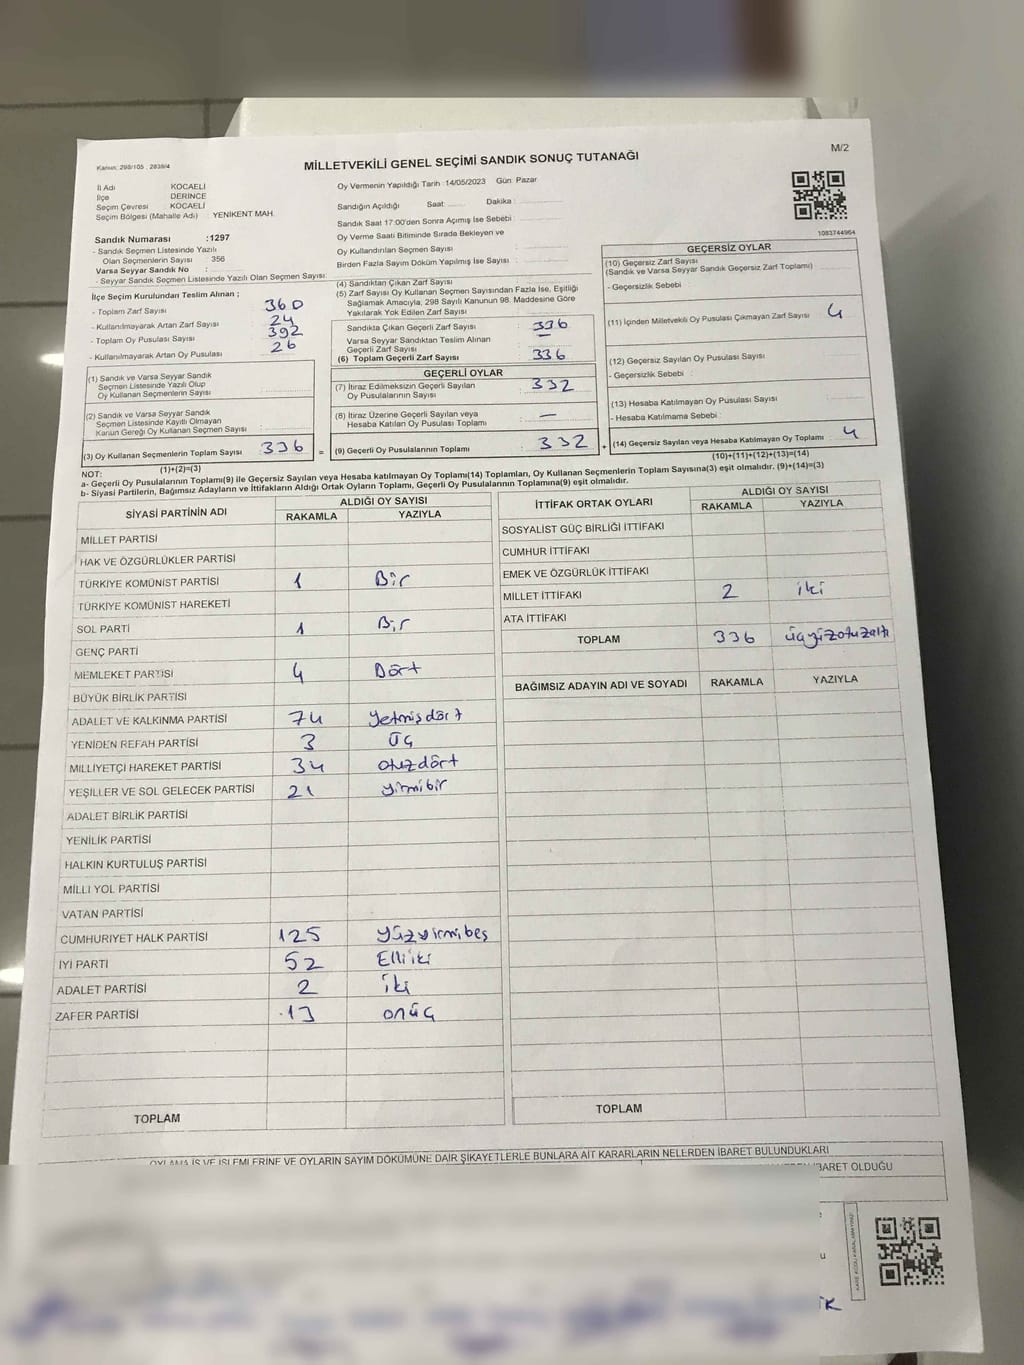 Kanun: 298/105 , 2839/4
MİLLETVEKİLİ GENEL SEÇİMİ SANDIK SONUÇ TUTANAĞI
M/2
İl Adı KOCAELİ
İlçe DERİNCE
Seçim Çevresi KOCAELİ
Seçim Bölgesi (Mahalle Adı) YENİKENT MAH.
Sandık Numarası :1297
- Sandık Seçmen Listesinde Yazılı
Olan Seçmenlerin Sayısı 356
Varsa Seyyar Sandık No :
- Seyyar Sandık Seçmen Listesinde Yazılı Olan Seçmen Sayısı:
İlçe Seçim Kurulundan Teslim Alınan ;
- Toplam Zarf Sayısı 360
- Kullanılmayarak Artan Zarf Sayısı 24
- Toplam Oy Pusulası Sayısı 392
- Kullanılmayarak Artan Oy Pusulası 26
(1) Sandık ve Varsa Seyyar Sandık
Seçmen Listesinde Yazılı Olup
Oy Kullanan Seçmenlerin Sayısı
(2) Sandık ve Varsa Seyyar Sandık
Seçmen Listesinde Kayıtlı Olmayan
Kanun Gereği Oy Kullanan Seçmen Sayısı :
(3) Oy Kullanan Seçmenlerin Toplam Sayısı 336 =
(1)+(2)=(3)
Oy Vermenin Yapıldığı Tarih :14/05/2023 Gün: Pazar
Sandığın Açıldığı Saat Dakika :
Sandık Saat 17:00'den Sonra Açımış İse Sebebi :
Oy Verme Saati Bitiminde Sırada Bekleyen ve
Oy Kullandırılan Seçmen Sayısı :
Birden Fazla Sayım Döküm Yapılmış İse Sayısı :
(4) Sandıktan Çıkan Zarf Sayısı
(5) Zarf Sayısı Oy Kullanan Seçmen Sayısından Fazla İse, Eşitliği
Sağlamak Amacıyla, 298 Sayılı Kanunun 98. Maddesine Göre
Yakılarak Yok Edilen Zarf Sayısı
Sandıkta Çıkan Geçerli Zarf Sayısı 336
Varsa Seyyar Sandıktan Teslim Alınan
Geçerli Zarf Sayısı —
(6) Toplam Geçerli Zarf Sayısı 336
GEÇERLİ OYLAR
(7) İtiraz Edilmeksizin Geçerli Sayılan
Oy Pusulalarının Sayısı 332
(8) İtiraz Üzerine Geçerli Sayılan veya
Hesaba Katılan Oy Pusulası Toplamı —
(9) Geçerli Oy Pusulalarının Toplamı 332 +
1083744964
GEÇERSİZ OYLAR
(10) Geçersiz Zarf Sayısı
(Sandık ve Varsa Seyyar Sandık Geçersiz Zarf Toplamı)
- Geçersizlik Sebebi :
(11) İçinden Milletvekili Oy Pusulası Çıkmayan Zarf Sayısı 4
(12) Geçersiz Sayılan Oy Pusulası Sayısı
- Geçersizlik Sebebi :
(13) Hesaba Katılmayan Oy Pusulası Sayısı
- Hesaba Katılmama Sebebi :
(14) Geçersiz Sayılan veya Hesaba Katılmayan Oy Toplamı 4
(10)+(11)+(12)+(13)=(14)
NOT:
a- Geçerli Oy Pusulalarının Toplamı(9) ile Geçersiz Sayılan veya Hesaba katılmayan Oy Toplamı(14) Toplamları, Oy Kullanan Seçmenlerin Toplam Sayısına(3) eşit olmalıdır. (9)+(14)=(3)
b- Siyasi Partilerin, Bağımsız Adayların ve İttifakların Aldığı Ortak Oyların Toplamı, Geçerli Oy Pusulalarının Toplamına(9) eşit olmalıdır.
SİYASİ PARTİNİN ADI ALDIĞI OY SAYISI
RAKAMLA YAZIYLA
MİLLET PARTİSİ
HAK VE ÖZGÜRLÜKLER PARTİSİ
TÜRKİYE KOMÜNİST PARTİSİ 1 Bir
TÜRKİYE KOMÜNİST HAREKETİ
SOL PARTİ 1 Bir
GENÇ PARTİ
MEMLEKET PARTİSİ 4 Dört
BÜYÜK BİRLİK PARTİSİ
ADALET VE KALKINMA PARTİSİ 74 Yetmişdört
YENİDEN REFAH PARTİSİ 3 Üç
MİLLİYETÇİ HAREKET PARTİSİ 34 otuzdört
YEŞİLLER VE SOL GELECEK PARTİSİ 21 yirmibir
ADALET BİRLİK PARTİSİ
YENİLİK PARTİSİ
HALKIN KURTULUŞ PARTİSİ
MİLLİ YOL PARTİSİ
VATAN PARTİSİ
CUMHURİYET HALK PARTİSİ 125 yüzyirmibeş
İYİ PARTİ 52 Elliiki
ADALET PARTİSİ 2 iki
ZAFER PARTİSİ 13 onüç
TOPLAM
İTTİFAK ORTAK OYLARI ALDIĞI OY SAYISI
RAKAMLA YAZIYLA
SOSYALİST GÜÇ BİRLİĞİ İTTİFAKI
CUMHUR İTTİFAKI
EMEK VE ÖZGÜRLÜK İTTİFAKI
MİLLET İTTİFAKI 2 iki
ATA İTTİFAKI
TOPLAM 336 üçyüzotuzaltı
BAĞIMSIZ ADAYIN ADI VE SOYADI RAKAMLA YAZIYLA
TOPLAM
OYLAMA İŞ VE İŞLEMLERİNE VE OYLARIN SAYIM DÖKÜMÜNE DAİR ŞİKAYETLERLE BUNLARA AİT KARARLARIN NELERDEN İBARET BULUNDUKLARI
İBARET OLDUĞU